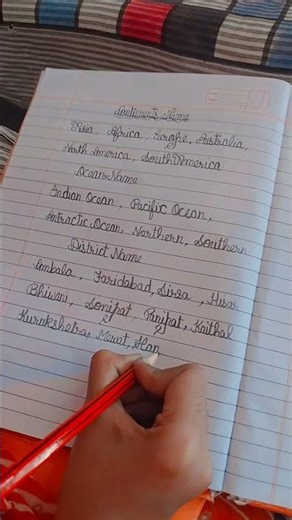 Continents Name
Asia Africa Europe, Australia,
North America, South America
Ocean Name
Indian Ocean, Pacific Ocean,
Antractic Ocean, Northern, Southern
District Name
Ambala, Faridabad, Sirsa, Hisar
Bhiwani, Sonipat Panipat, Kaithal
Kurukshetra, Mewat, Han